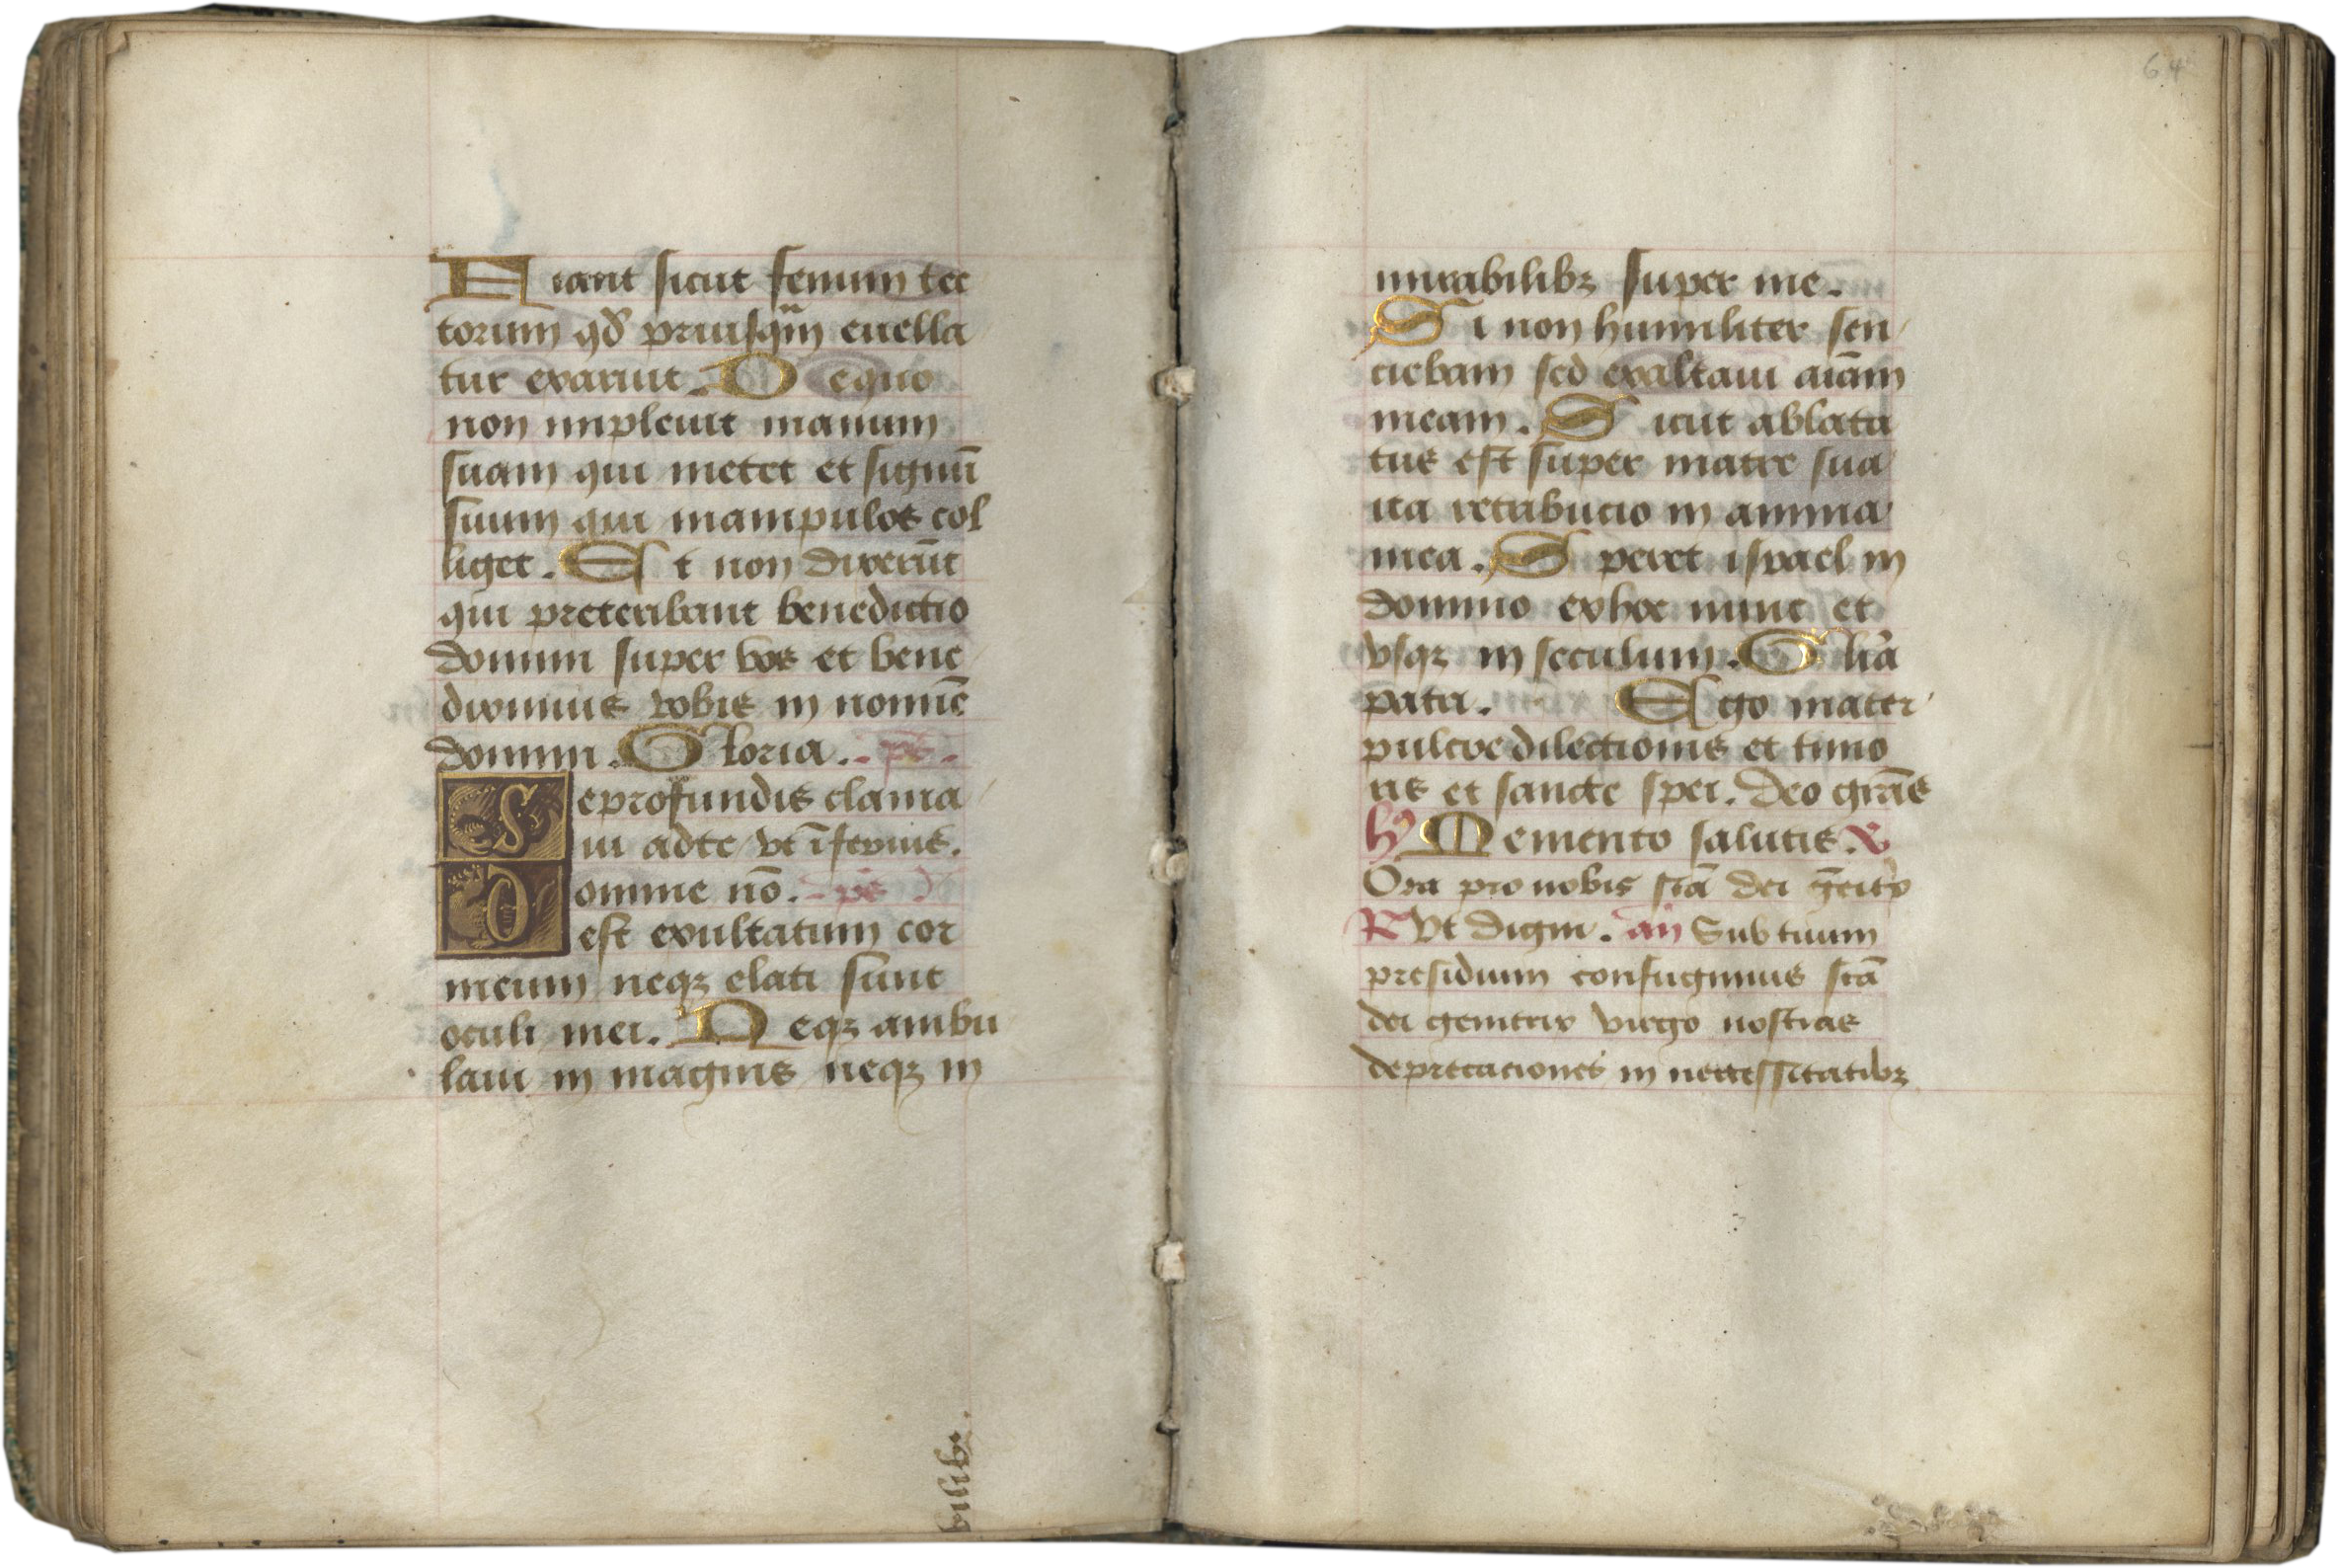 Fiant sicut fenum tec
torum qd̄ priusqm̄ euella
tur exaruit. De quo
non impleuit manum
suam qui metet et siguū
suum qui manipulos col
liget. Et non dixerūt
qui preteribant benedictio
domini super vos et bene
diximus vobis in nomīe
domini. Gloria. ps.
Seprofundis clama
ui adte vt īferius.
Domine nō. ps
est exultatum cor
meum neqz elati sunt
oculi mei. Neqz ambu
laui in magnis neqz in
bilib.
64
mirabilibz super me.
Si non humiliter sen
ciebam sed exaltaui aīam
meam. Sicut ablata
tus est super matre sua
ita retribucio in anima
mea. Speret israel in
domino exhoc nunc et
vsqz in seculum. Glīa
patri. Ego mater
pulcre dilectionis et timo
ris et sancte spei. Deo grās
hỹ Memento salutis. V
Ora pro nobis sctā dei
R Vt digni. an Sub tuum
presidium confugimus sctā
dei genitrix virgo nostras
deprecationes in necessitatibz